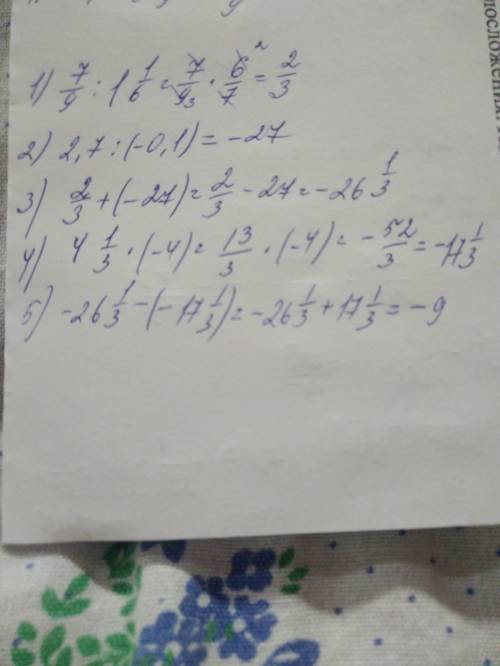 1) 7/9 : 1 1/6 = 7/9 3 · 6 2/7 = 2/3
2) 2,7 : (-0,1) = -27
3) 2/3 + (-27) = 2/3 - 27 = -26 1/3
4) 4 1/3 · (-4) = 13/3 · (-4) = - 52/3 = -17 1/3
5) -26 1/3 - (-17 1/3) = -26 1/3 + 17 1/3 = -9